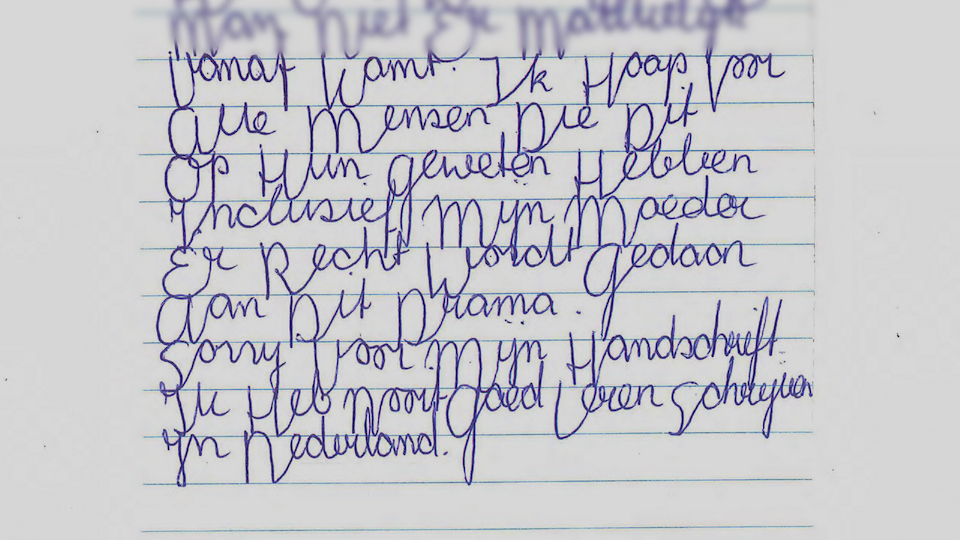 Man Niet Er
Vanaf Kamt. Ik Hoop Voor
Alle Mensen Die Dit
Op Hun Geweten Hebben
Inclusief Mijn Moeder
Er Recht Wordt Gedaan
Aan Dit Drama.
Sorry Voor Mijn Handschrift
Ik Heb Nooit Goed Leren Schrijven
In Nederland.